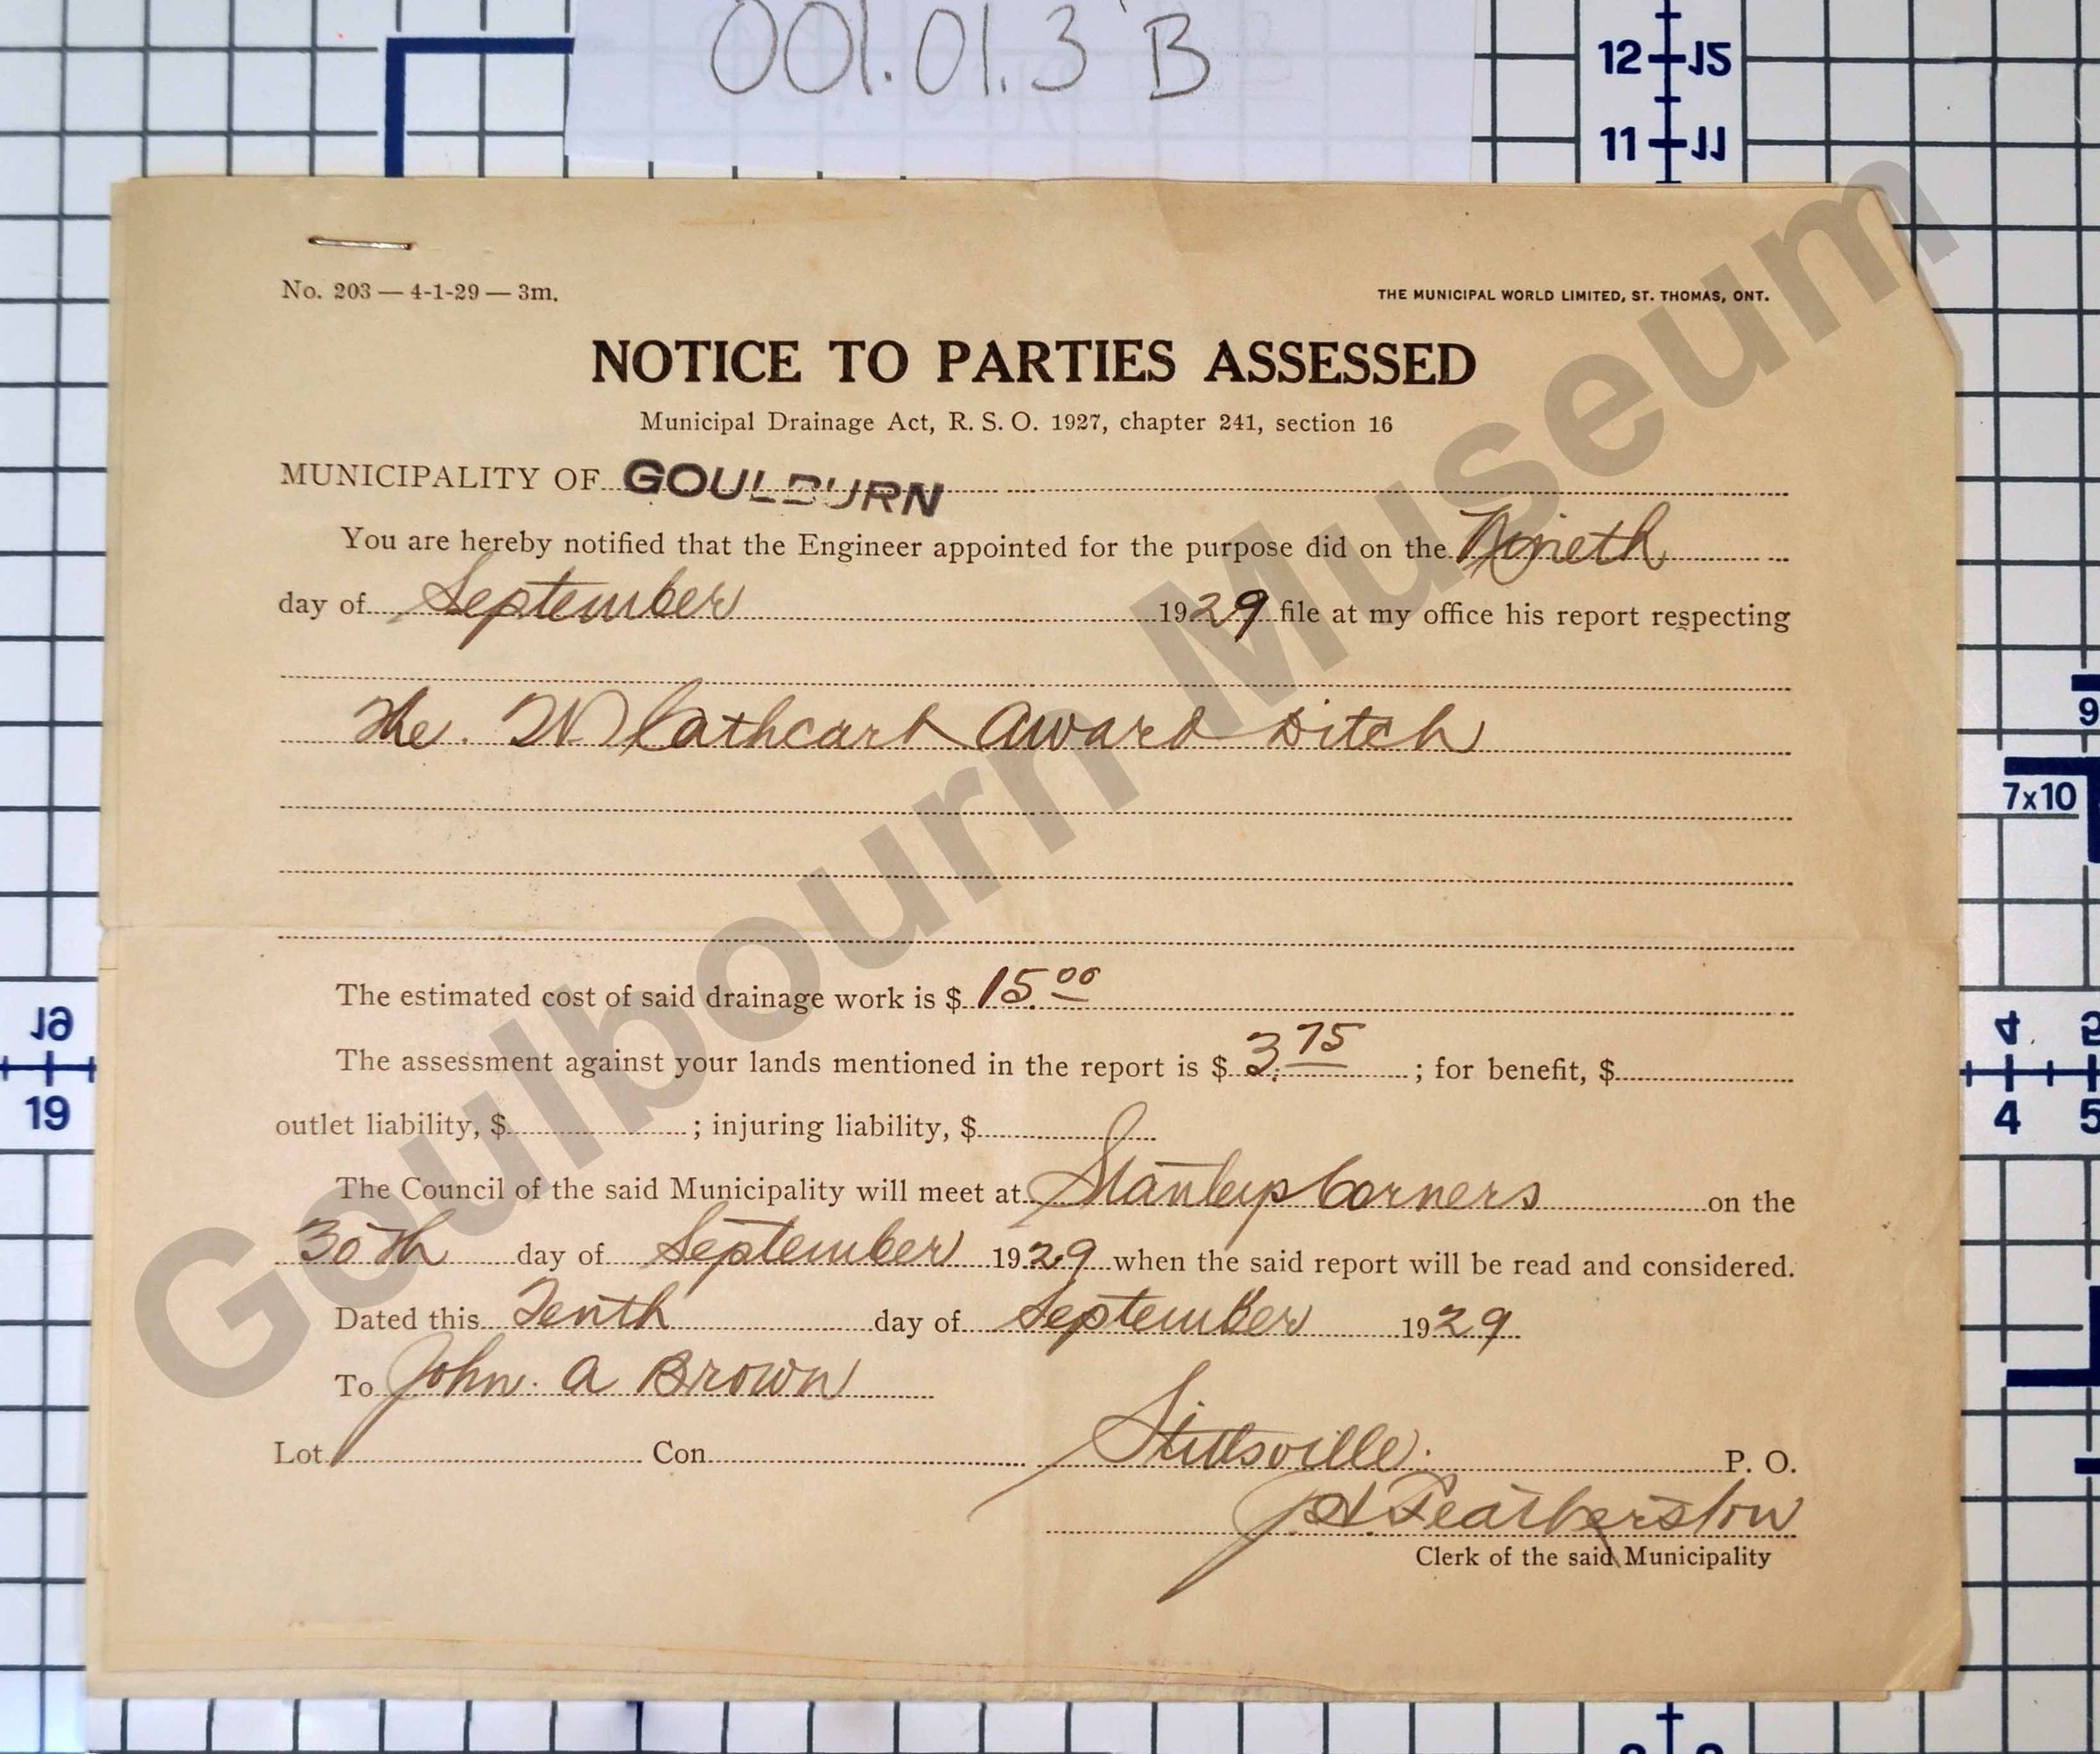 001.01.3 B
12 12
11 11
No. 203 — 4-1-29 — 3m.
THE MUNICIPAL WORLD LIMITED, ST. THOMAS, ONT.
NOTICE TO PARTIES ASSESSED
Municipal Drainage Act, R. S. O. 1927, chapter 241, section 16
MUNICIPALITY OF GOULBURN
You are hereby notified that the Engineer appointed for the purpose did on the Nineth
day of September 1929 file at my office his report respecting
The W Cathcart Award Ditch
The estimated cost of said drainage work is $ 15.00
The assessment against your lands mentioned in the report is $ 3.75 ; for benefit, $
outlet liability, $ ; injuring liability, $
The Council of the said Municipality will meet at Stanleys Corners on the
30th day of September 1929 when the said report will be read and considered.
Dated this Tenth day of September 1929
To John. A Brown
Lot Con Stittsville. P. O.
Featherston
Clerk of the said Municipality
Goulbourn Museum
9
7x10
19
19
4 5
4 5